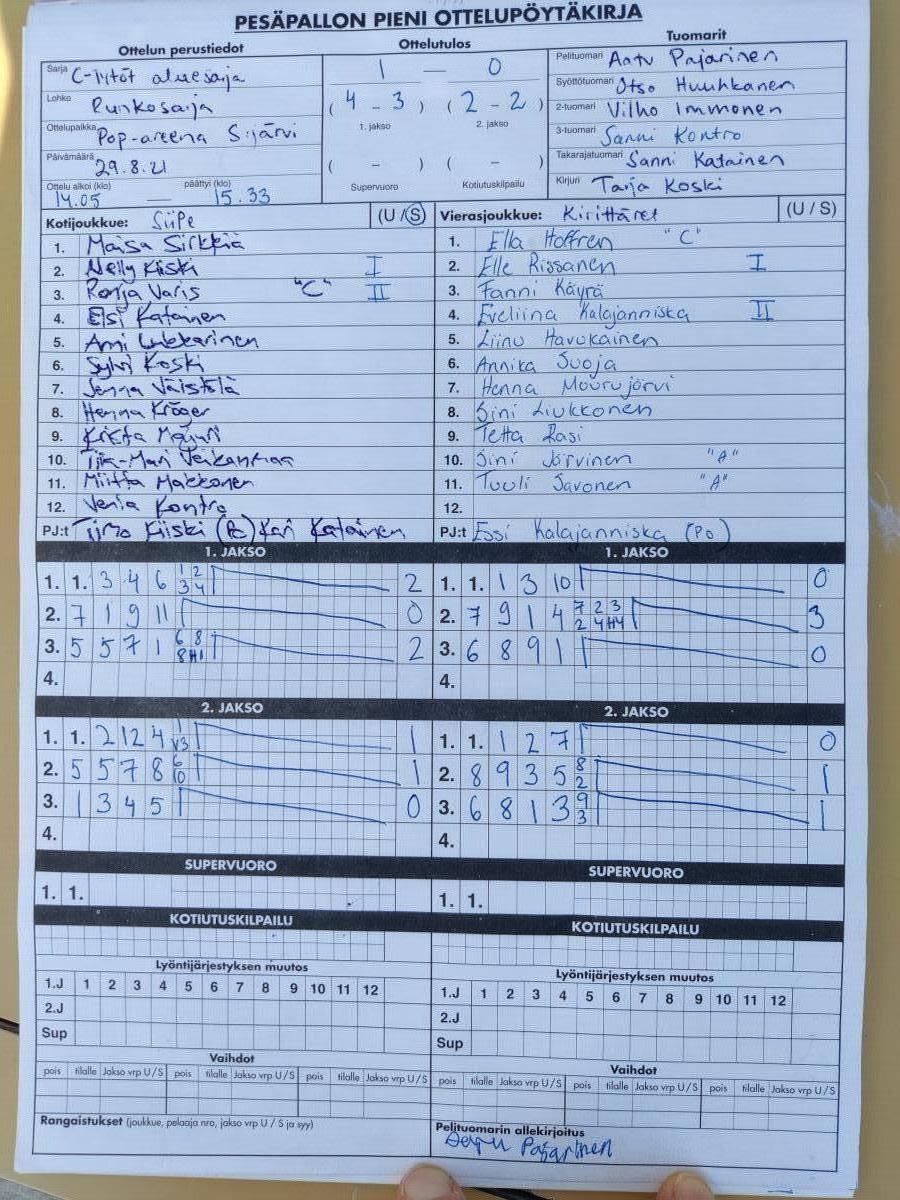 PESÄPALLON PIENI OTTELUPÖYTÄKIRJA
Ottelun perustiedot
Sarja C-tytöt aluesarja
Lohko Runkosarja
Ottelupaikka Pop-areena S:järvi
Päivämäärä 29.8.21
Ottelu alkoi (klo) päättyi (klo)
14.05 — 15.33
Ottelutulos
1 — 0
(4 - 3) (2 - 2)
1. jakso 2. jakso
( - ) ( - )
Supervuoro Kotiutuskilpailu
Tuomarit
Pelituomari Aatu Pajarinen
Syöttötuomari Otso Huuhkanen
2-tuomari Vilho Immonen
3-tuomari Sanni Kontro
Takarajatuomari Sanni Katainen
Kirjuri Tarja Koski
Kotijoukkue: SiiPe (U / S)
1. Maisa Sirkkiä
2. Nelly Kiiski I
3. Ronja Varis "C" II
4. Elsi Katainen
5. Ami
6. Sylvi Koski
7. Jenna Väistölä
8. Henna Kröger
9. Krista Majuri
10. Tiia-Mari
11. Miitta Makkonen
12. Venla Kontro
PJ:t Timo Kiiski (Po) Kari Katainen
Vierasjoukkue: Kirittäret (U / S)
1. Ella Hoffren "C"
2. Elle Rissanen I
3. Fanni Käyrä
4. Eveliina Kalajanniska II
5. Liinu Havukainen
6. Annika Suoja
7. Henna Muurujärvi
8. Sini Liukkonen
9. Tetta Rasi
10. Sini Järvinen "A"
11. Tuuli Savonen "A"
12.
PJ:t Essi Kalajanniska (Po)
1. JAKSO
1. 1. 3 4 6 1 2 2
3 4
2. 7 1 9 11 0
3. 5 5 7 1 6 8 2
8 H1
4.
1. JAKSO
1. 1. 1 3 10 0
2. 7 9 1 4 7 2 3 3
2 4 H4
3. 6 8 9 1 0
4.
2. JAKSO
1. 1. 2 12 4 1 1
V3
2. 5 5 7 8 6 1
10
3. 1 3 4 5 0
4.
2. JAKSO
1. 1. 1 2 7 0
2. 8 9 3 5 8 1
2
3. 6 8 1 3 9 1
3
4.
SUPERVUORO
1. 1.
SUPERVUORO
1. 1.
KOTIUTUSKILPAILU
KOTIUTUSKILPAILU
Lyöntijärjestyksen muutos
1.J 1 2 3 4 5 6 7 8 9 10 11 12
2.J
Sup
Lyöntijärjestyksen muutos
1.J 1 2 3 4 5 6 7 8 9 10 11 12
2.J
Sup
Vaihdot
pois tilalle Jakso vrp U / S pois tilalle Jakso vrp U / S pois tilalle Jakso vrp U / S
Vaihdot
pois tilalle Jakso vrp U / S pois tilalle Jakso vrp U / S pois tilalle Jakso vrp U / S
Rangaistukset (joukkue, pelaaja nro, jakso vrp U / S ja syy)
Pelituomarin allekirjoitus
Pajarinen